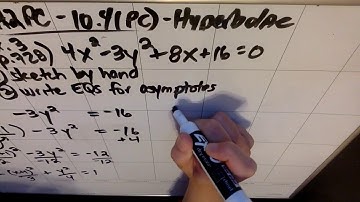 A2PC - 10.4(PC) - Hyperbolae
p.728) 4x² - 3y² + 8x + 16 = 0
1) sketch by hand
2) write EQs for asymptotes
- 3y² = -16
) - 3y² = -16
+4
- 3y² = -12
-12 12
+ y² = 1
4
EXPO